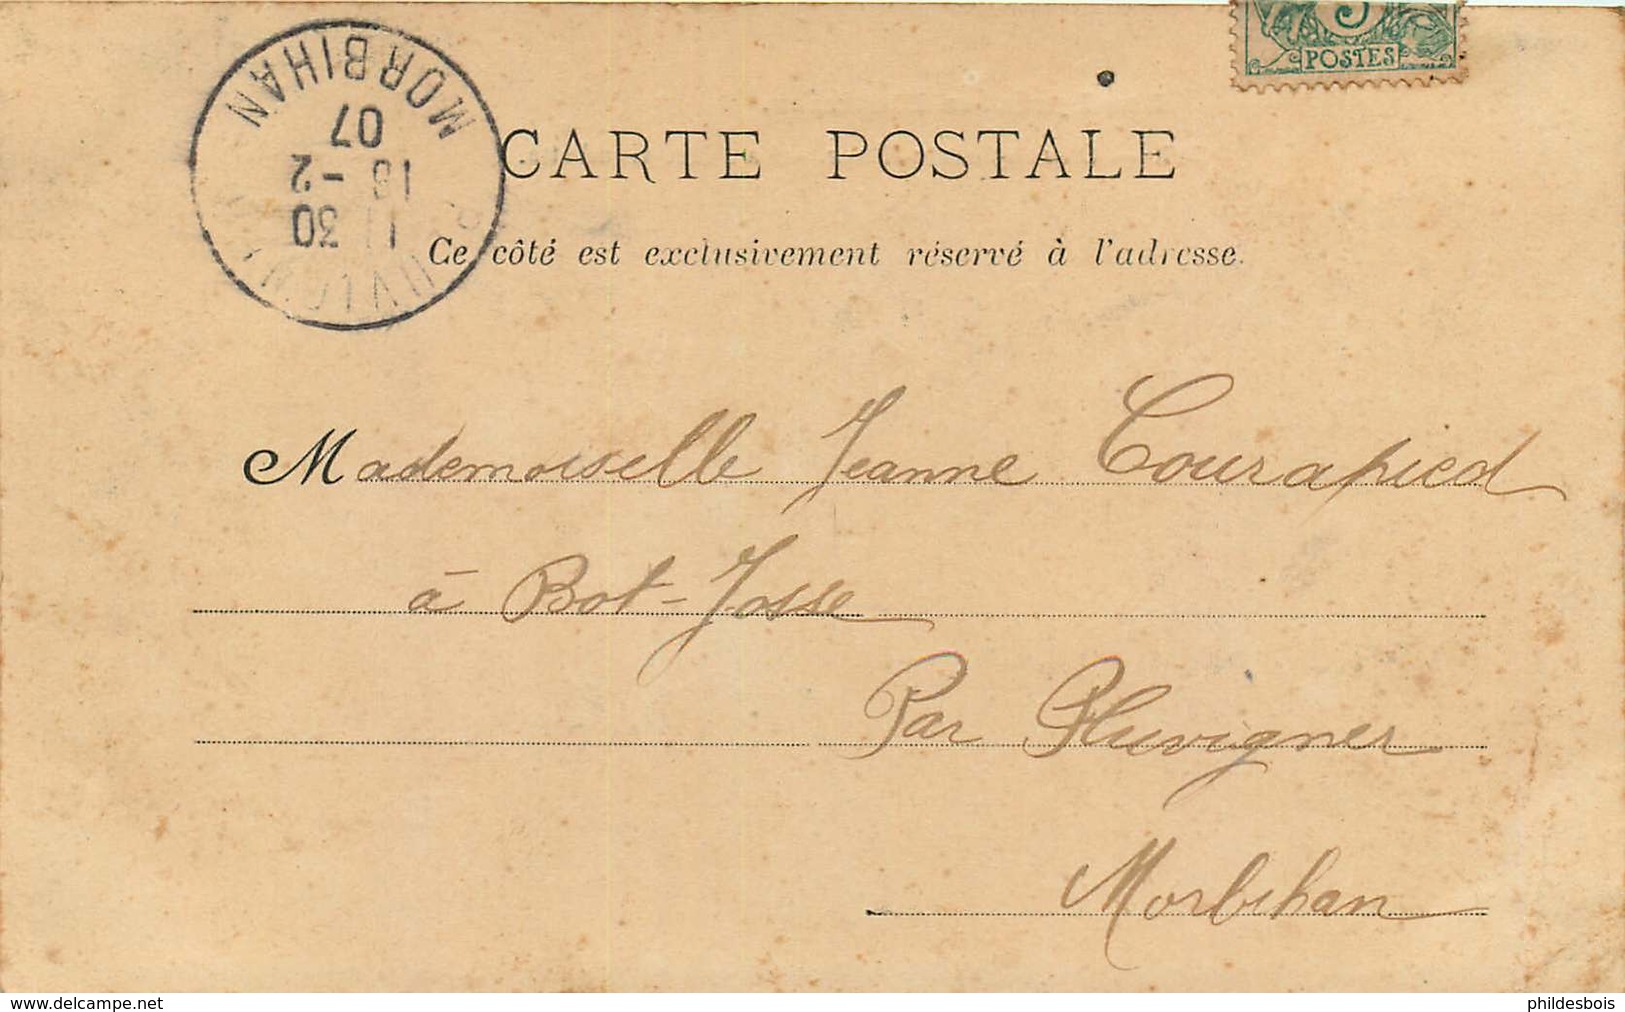 5
POSTES
MORBIHAN
07
18 -2
11 30
CARTE POSTALE
Ce côté est exclusivement réservé à l'adresse.
Mademoiselle Jeanne Courapied
à Bot-Josse
Par Pluvigner
Morbihan
www.delcampe.net
phildesbois